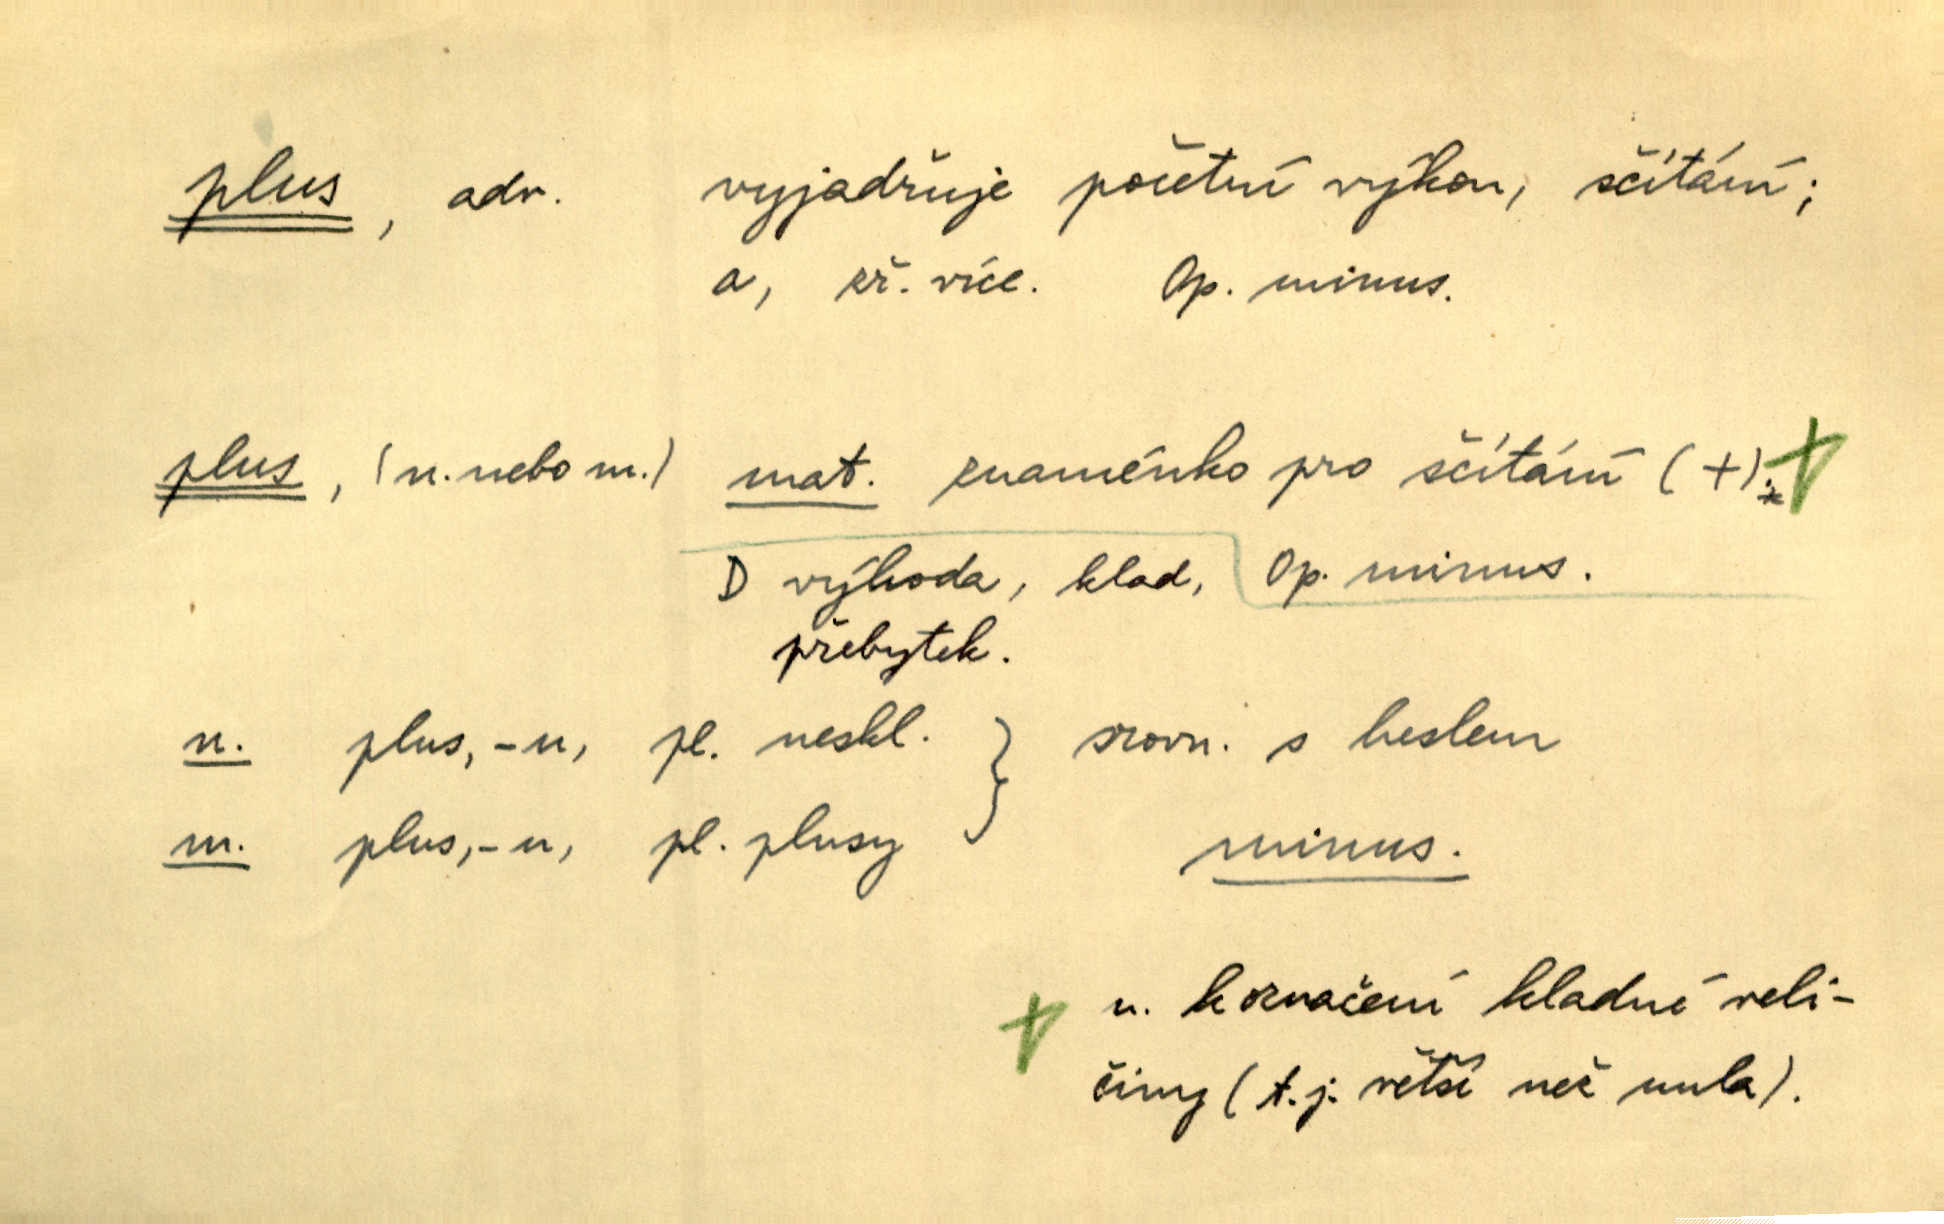 plus, adv. vyjadřuje početní výkon, sčítání;
a, zř. více. Op. minus.
plus, (n. nebo m.) mat. znaménko pro sčítání (+).
D výhoda, klad, Op. minus.
přebytek.
n. plus, -u, pl. neskl. } srovn. s heslem
m. plus, -u, pl. plusy minus.
+ n. k označení kladné veli-
činy (t.j. větší než nula).